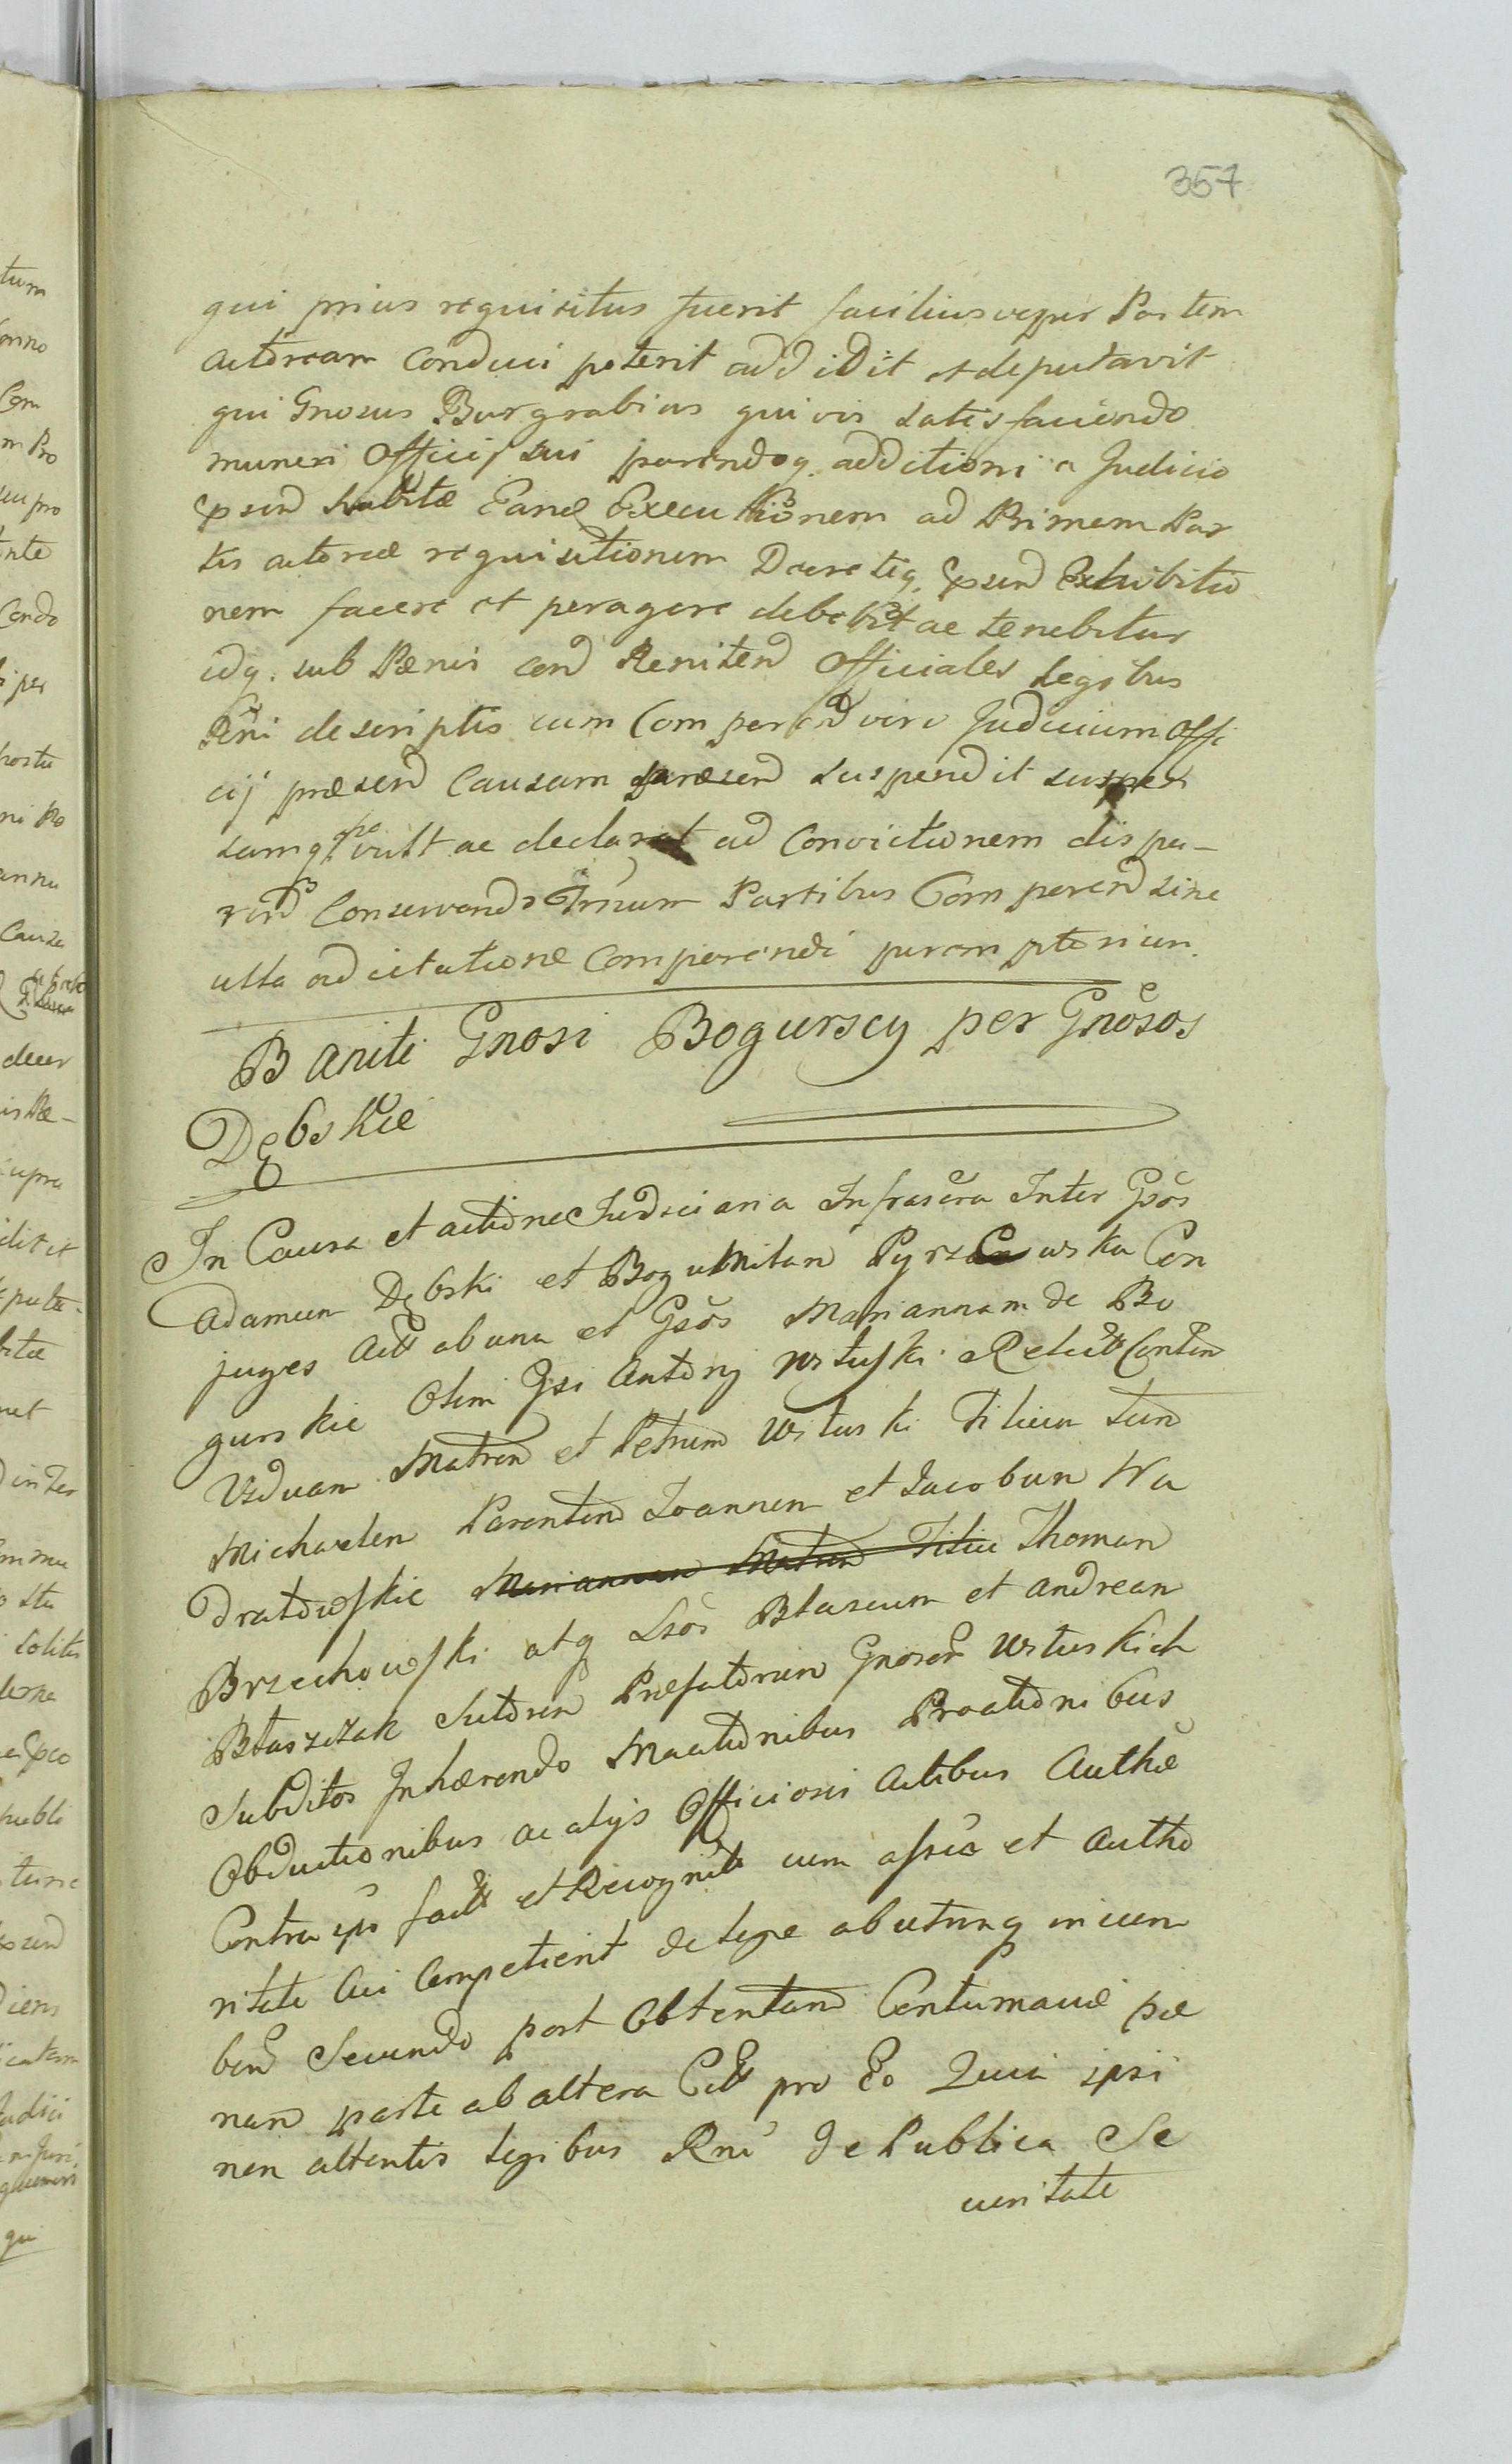 357
qui prius requisitus fuerit faciliusveper Partem
actoream conduci poterit addidit et deputavit
qui Gnosus Burgrabius quivis satisfaciendo
muneri Officij sui parendoq. additioni a Judicio
psend habitæ Eand Executionem ad Primam Par
tis actoreæ requisitionem Decretiq. psend Exhibitio
nem facere et peragere debebit ac tenebitur
idq. sub Pænis cond Renitend Officiales Legibus
Rni descriptis cum Comparend vero Judicium Offi
cij præsend Causam præsend suspendit suspen
samq. ee vult ac declarat ad Convictionem dispa-
rend Conservando Trnum Partibus Comparend sine
ulla adcitatione Comparendi peremptorium.
Baniti Gnosi Bogurscy per Gnosos
Dębskie
In Causa et actione Judiciaria Infrascra Inter Gsos
Adamum Dębski et Bogumilam Pyrz wska Con
juges Act ab una et Gsos Mariannam de Bo
gurskie Olim Gsi Antonij Wituski Relict Conten
Viduam Matrem et Petrum Wituski Filium tum
Michaelem Parentem Joannem et Jacobum Wa
dratowskie Mariannam Matrem Filiu Thomam
Brzechowski atq Lsos Blasium et Andream
Błaszczak Sutorem Præfatorum Gnosor Wituskich
Subditos Inhærendo Manionibus Proationibus
Obductionibus ac alijs Officiosis Actibus Authe
Contra ipos fact et Recognit cum assia et Autho
ritate Cui Competient de lege ab utrinq incum
bend Secundo post Obtentam Contumaciæ pæ
nam parte ab altera Citt pro Eo Quia ipsi
non attentis Legibus Rni de Publica Se
curitate